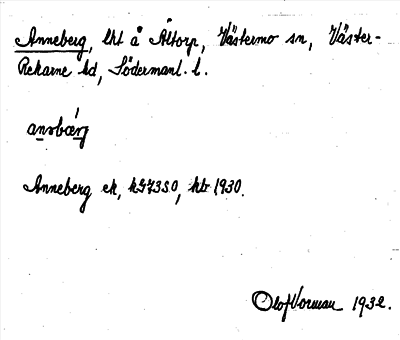 Anneberg, lht å Åltorp, Västermo sn, Väster-
Rekarne hd, Södermanl. l.
anəbærj
Anneberg ek, kG7350, htr 1930.
Olof Vorman 1932.